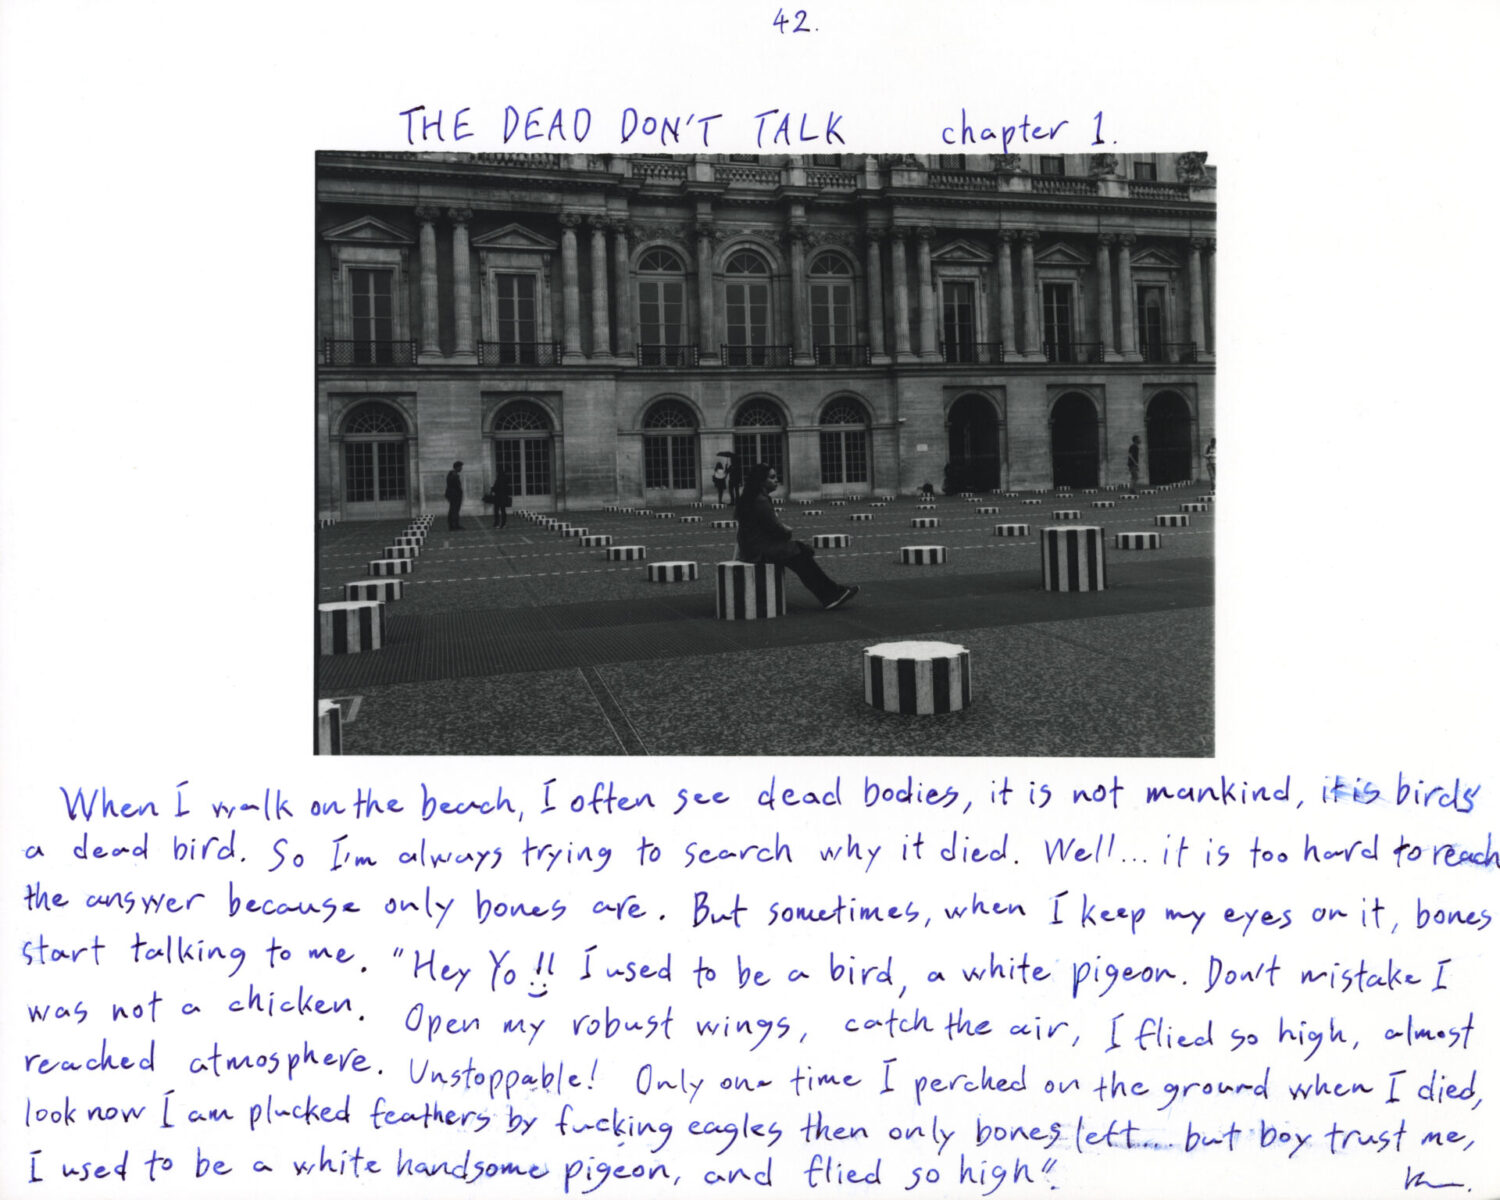 42.
THE DEAD DON'T TALK chapter 1.
When I walk on the beach, I often see dead bodies, it is not mankind, it is birds
a dead bird. So I'm always trying to search why it died. Well... it is too hard to reach
the answer because only bones are. But sometimes, when I keep my eyes on it, bones
start talking to me. "Hey Yo!! I used to be a bird, a white pigeon. Don't mistake I
was not a chicken. Open my robust wings, catch the air, I flied so high, almost
reached atmosphere. Unstoppable! Only one time I perched on the ground when I died,
look now I am plucked feathers by fucking eagles then only bones left... but boy trust me,
I used to be a white handsome pigeon, and flied so high".